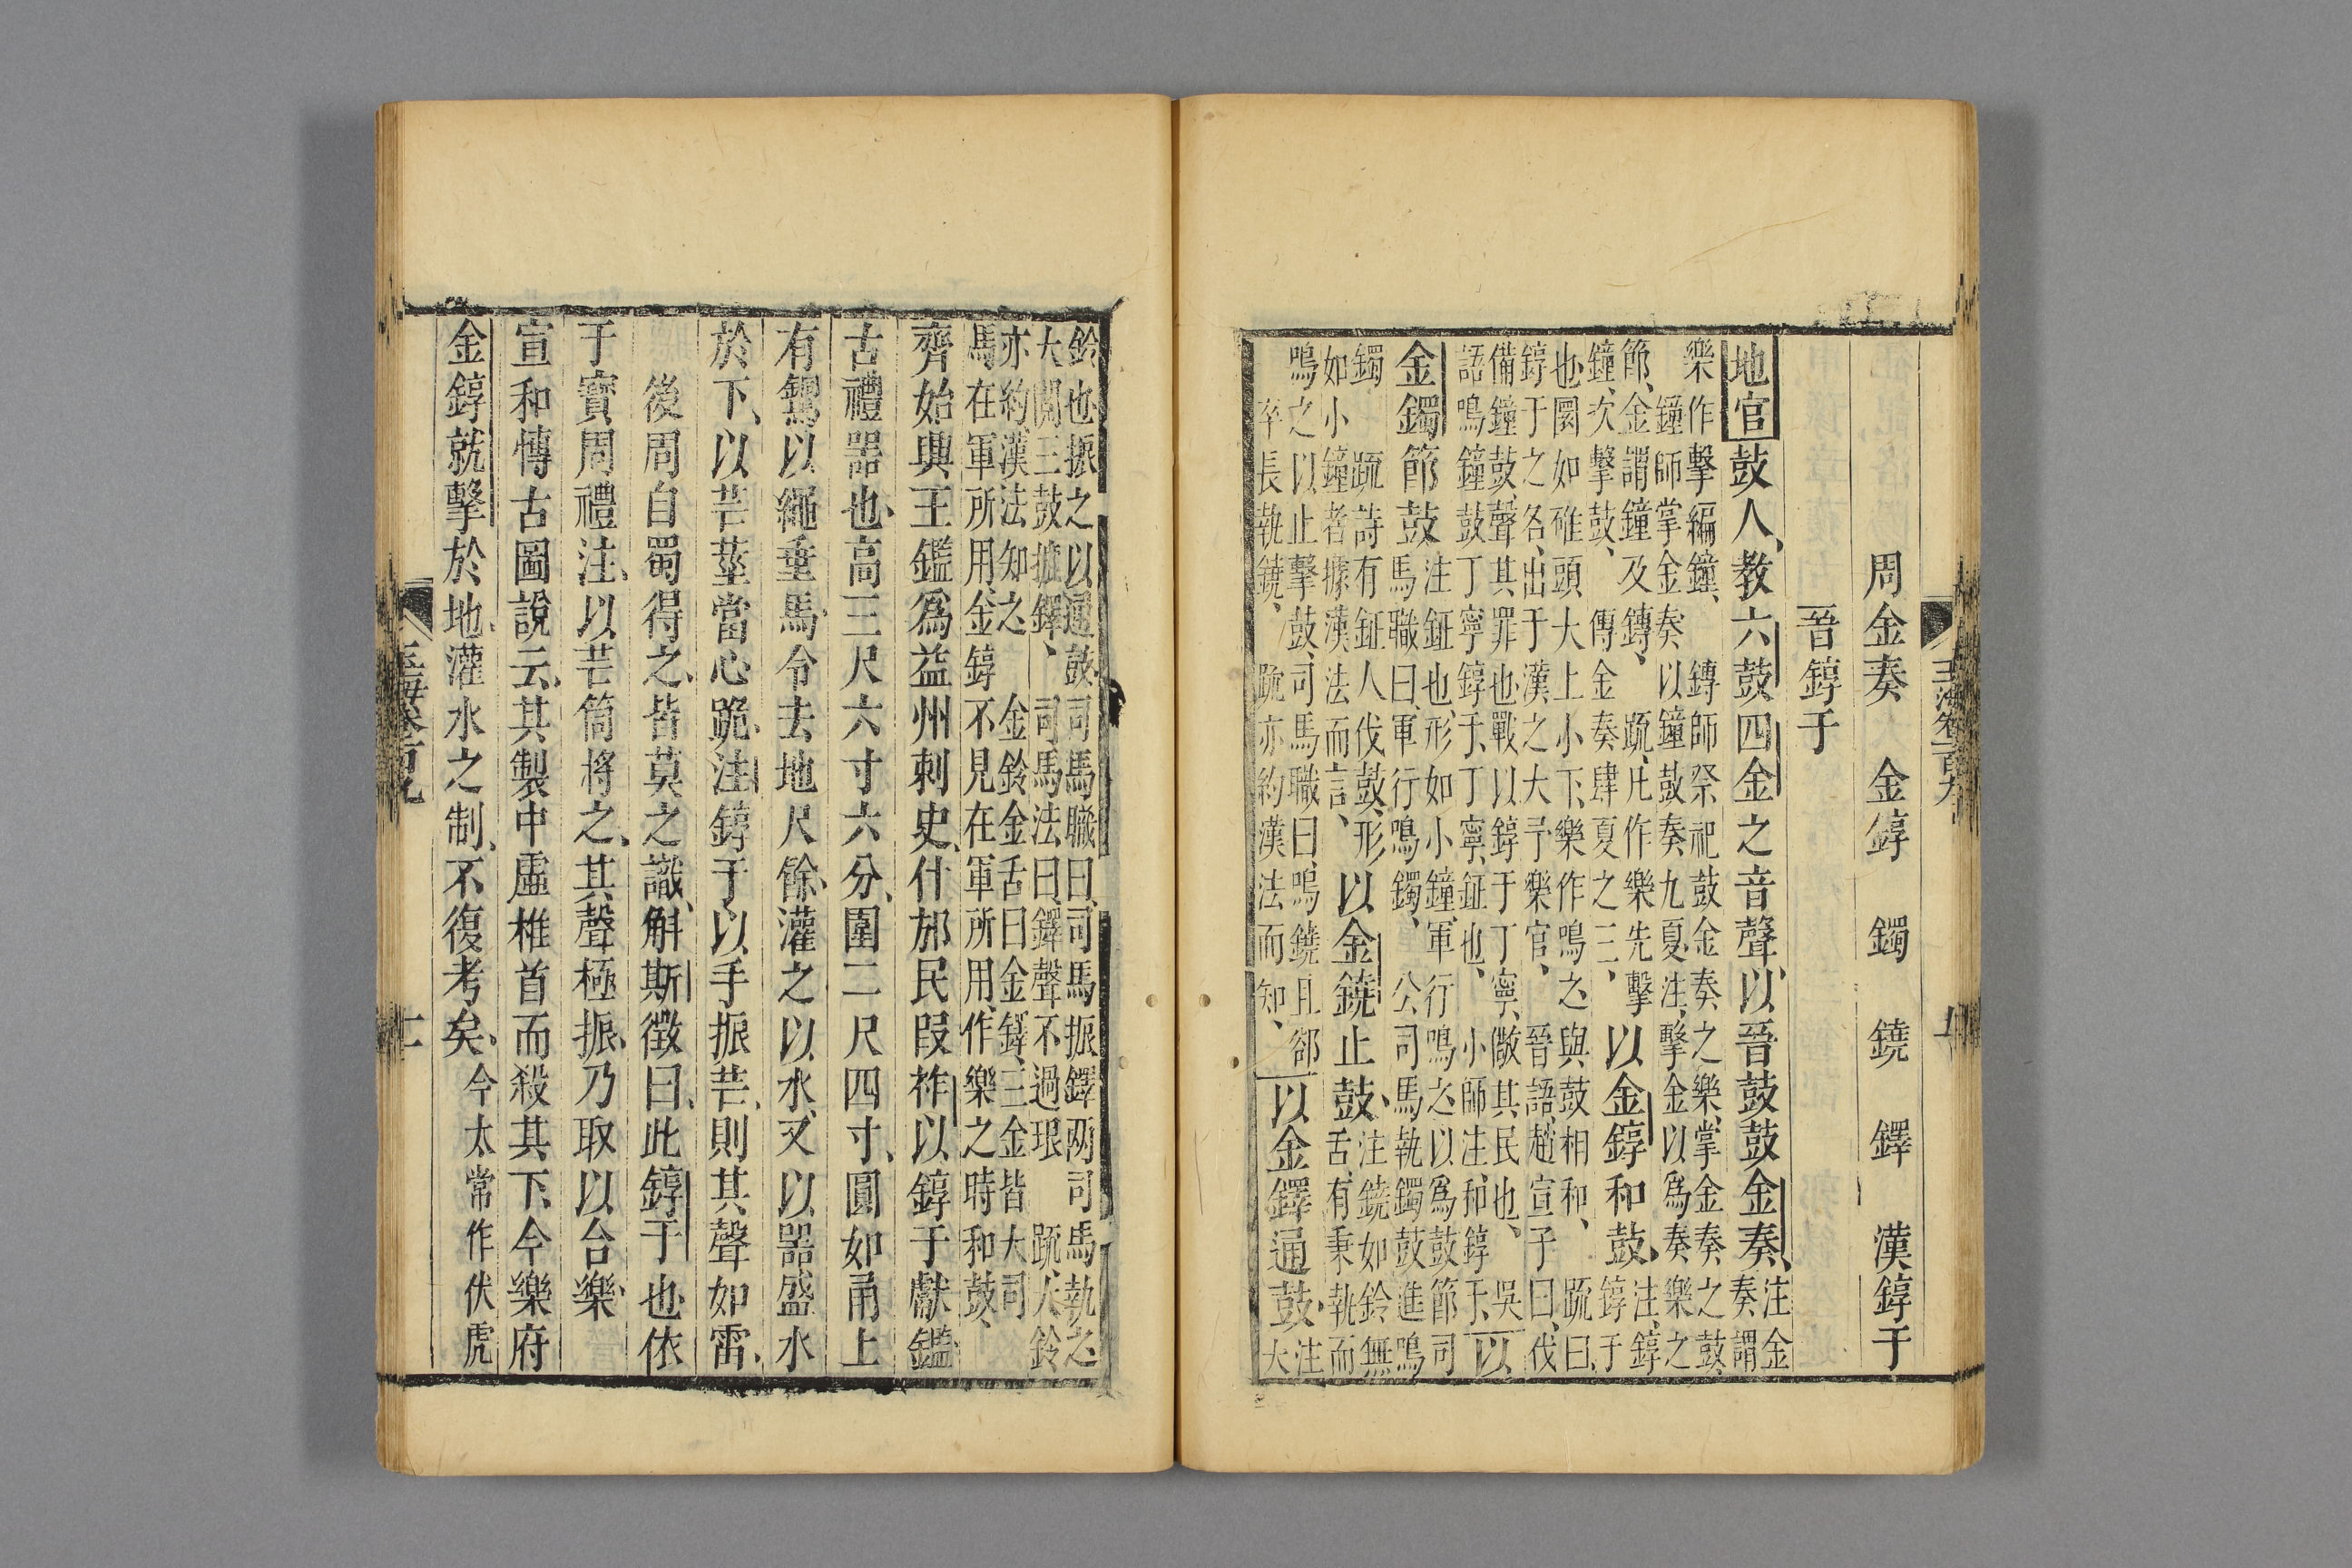 玉海卷一百九
周金奏　金錞　鐲　鐃　鐸　漢錞于
晉錞于
地官鼓人教六鼓四金之音聲以晉鼓鼓金奏注金奏謂
樂作擊編鐘鎛師祭祀鼓金奏之樂掌金奏之鼓
鐘師掌金奏以鐘鼓奏九夏注擊金以為奏樂之
節金謂鐘及鎛疏凡作樂先擊
鐘次擊鼓傳金奏肆夏之三
以金錞和鼓
注錞錞于
也圜如碓頭大上小下樂作鳴之與鼓相和疏曰
錞于之名出于漢之大予樂官晉語趙宣子曰伐
備鐘鼓聲其罪也戰以錞于丁寧儆其民也吳
語鳴鐘鼓丁寧錞于丁寧鉦也小師注和錞于
以
金鐲節鼓
注鉦也形如小鐘軍行鳴之以為鼓節司
馬職曰軍行鳴鐲公司馬執鐲鼓進鳴
鐲疏詩有鉦人伐鼓形
如小鐘者據漢法而言
以金鐃止鼓
注鐃如鈴無
舌有秉執而
鳴之以止擊鼓司馬職曰鳴鐃且郤
卒長執鐃疏亦約漢法而知
以金鐸通鼓
注大
鈴也振之以通鼓司馬職曰司馬振鐸兩司馬執之
大閱三鼓摝鐸司馬法曰鐸聲不過琅疏大鈴
亦約漢法知之金鈴金舌曰金鐸三金皆大司
馬在軍所用金錞不見在軍所用作樂之時和鼓
齊始興王鑑為益州刺史什邡民段祚以錞于獻鑑
古禮器也高三尺六寸六分圍二尺四寸圓如甬上
有銅馬以繩垂馬令去地尺餘灌之以水又以器盛水
於下以芒莖當心跪注錞于以手振芒則其聲如雷
後周自蜀得之皆莫之識斛斯徵曰此錞于也依
于寶周禮注以芒筒將之其聲極振乃取以合樂
宣和愽古圖說云其製中虛椎首而殺其下今樂府
金錞就擊於地灌水之制不復考矣今太常作伏虎
玉海卷一百九